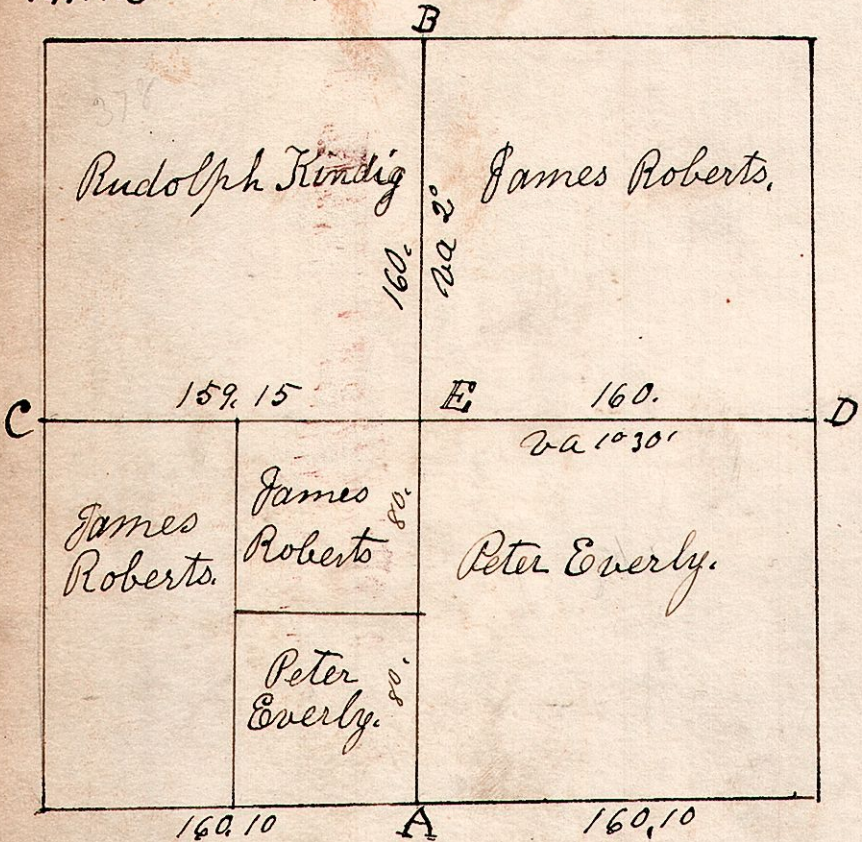 B
378
Rudolph Kindig
James Roberts.
160.
va 2°
159.15
E
160.
C
D
va 1° 30'
James
Roberts.
James
Roberts
80.
Peter Everly.
Peter
Everly.
80.
160.10
A
160,10